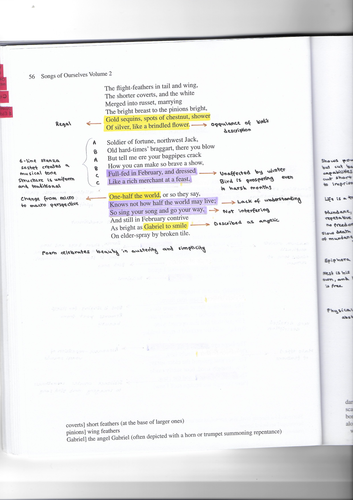 56 Songs of Ourselves Volume 2
The flight-feathers in tail and wing,
The shorter coverts, and the white
Merged into russet, marrying
The bright breast to the pinions bright,
Gold sequins, spots of chestnut, shower
Of silver, like a brindled flower.
Regal
Oppulence of bird's
description
Soldier of fortune, northwest Jack,
Old hard-times' braggart, there you blow
But tell me are your bagpipes crack
How you can make so brave a show,
Full-fed in February, and dressed
Like a rich merchant at a feast.
A
B
A
B
C
C
6-line stanza
sestet creates a
musical tone
Structure is uniform
and traditional
Unaffected by winter
Bird is prospering even
in harsh months
One-half the world, or so they say,
Knows not how half the world may live;
So sing your song and go your way,
And still in February contrive
As bright as Gabriel to smile
On elder-spray by broken tile.
Change from micro
to macro perspective
Lack of understanding
Not interfering
Described as angelic
Poem celebrates beauty in austerity and simplicity
Life is a
Mundane,
repetitive
Epiphora
is free
Physical
coverts] short feathers (at the base of larger ones)
pinions] wing feathers
Gabriel] the angel Gabriel (often depicted with a horn or trumpet summoning repentance)